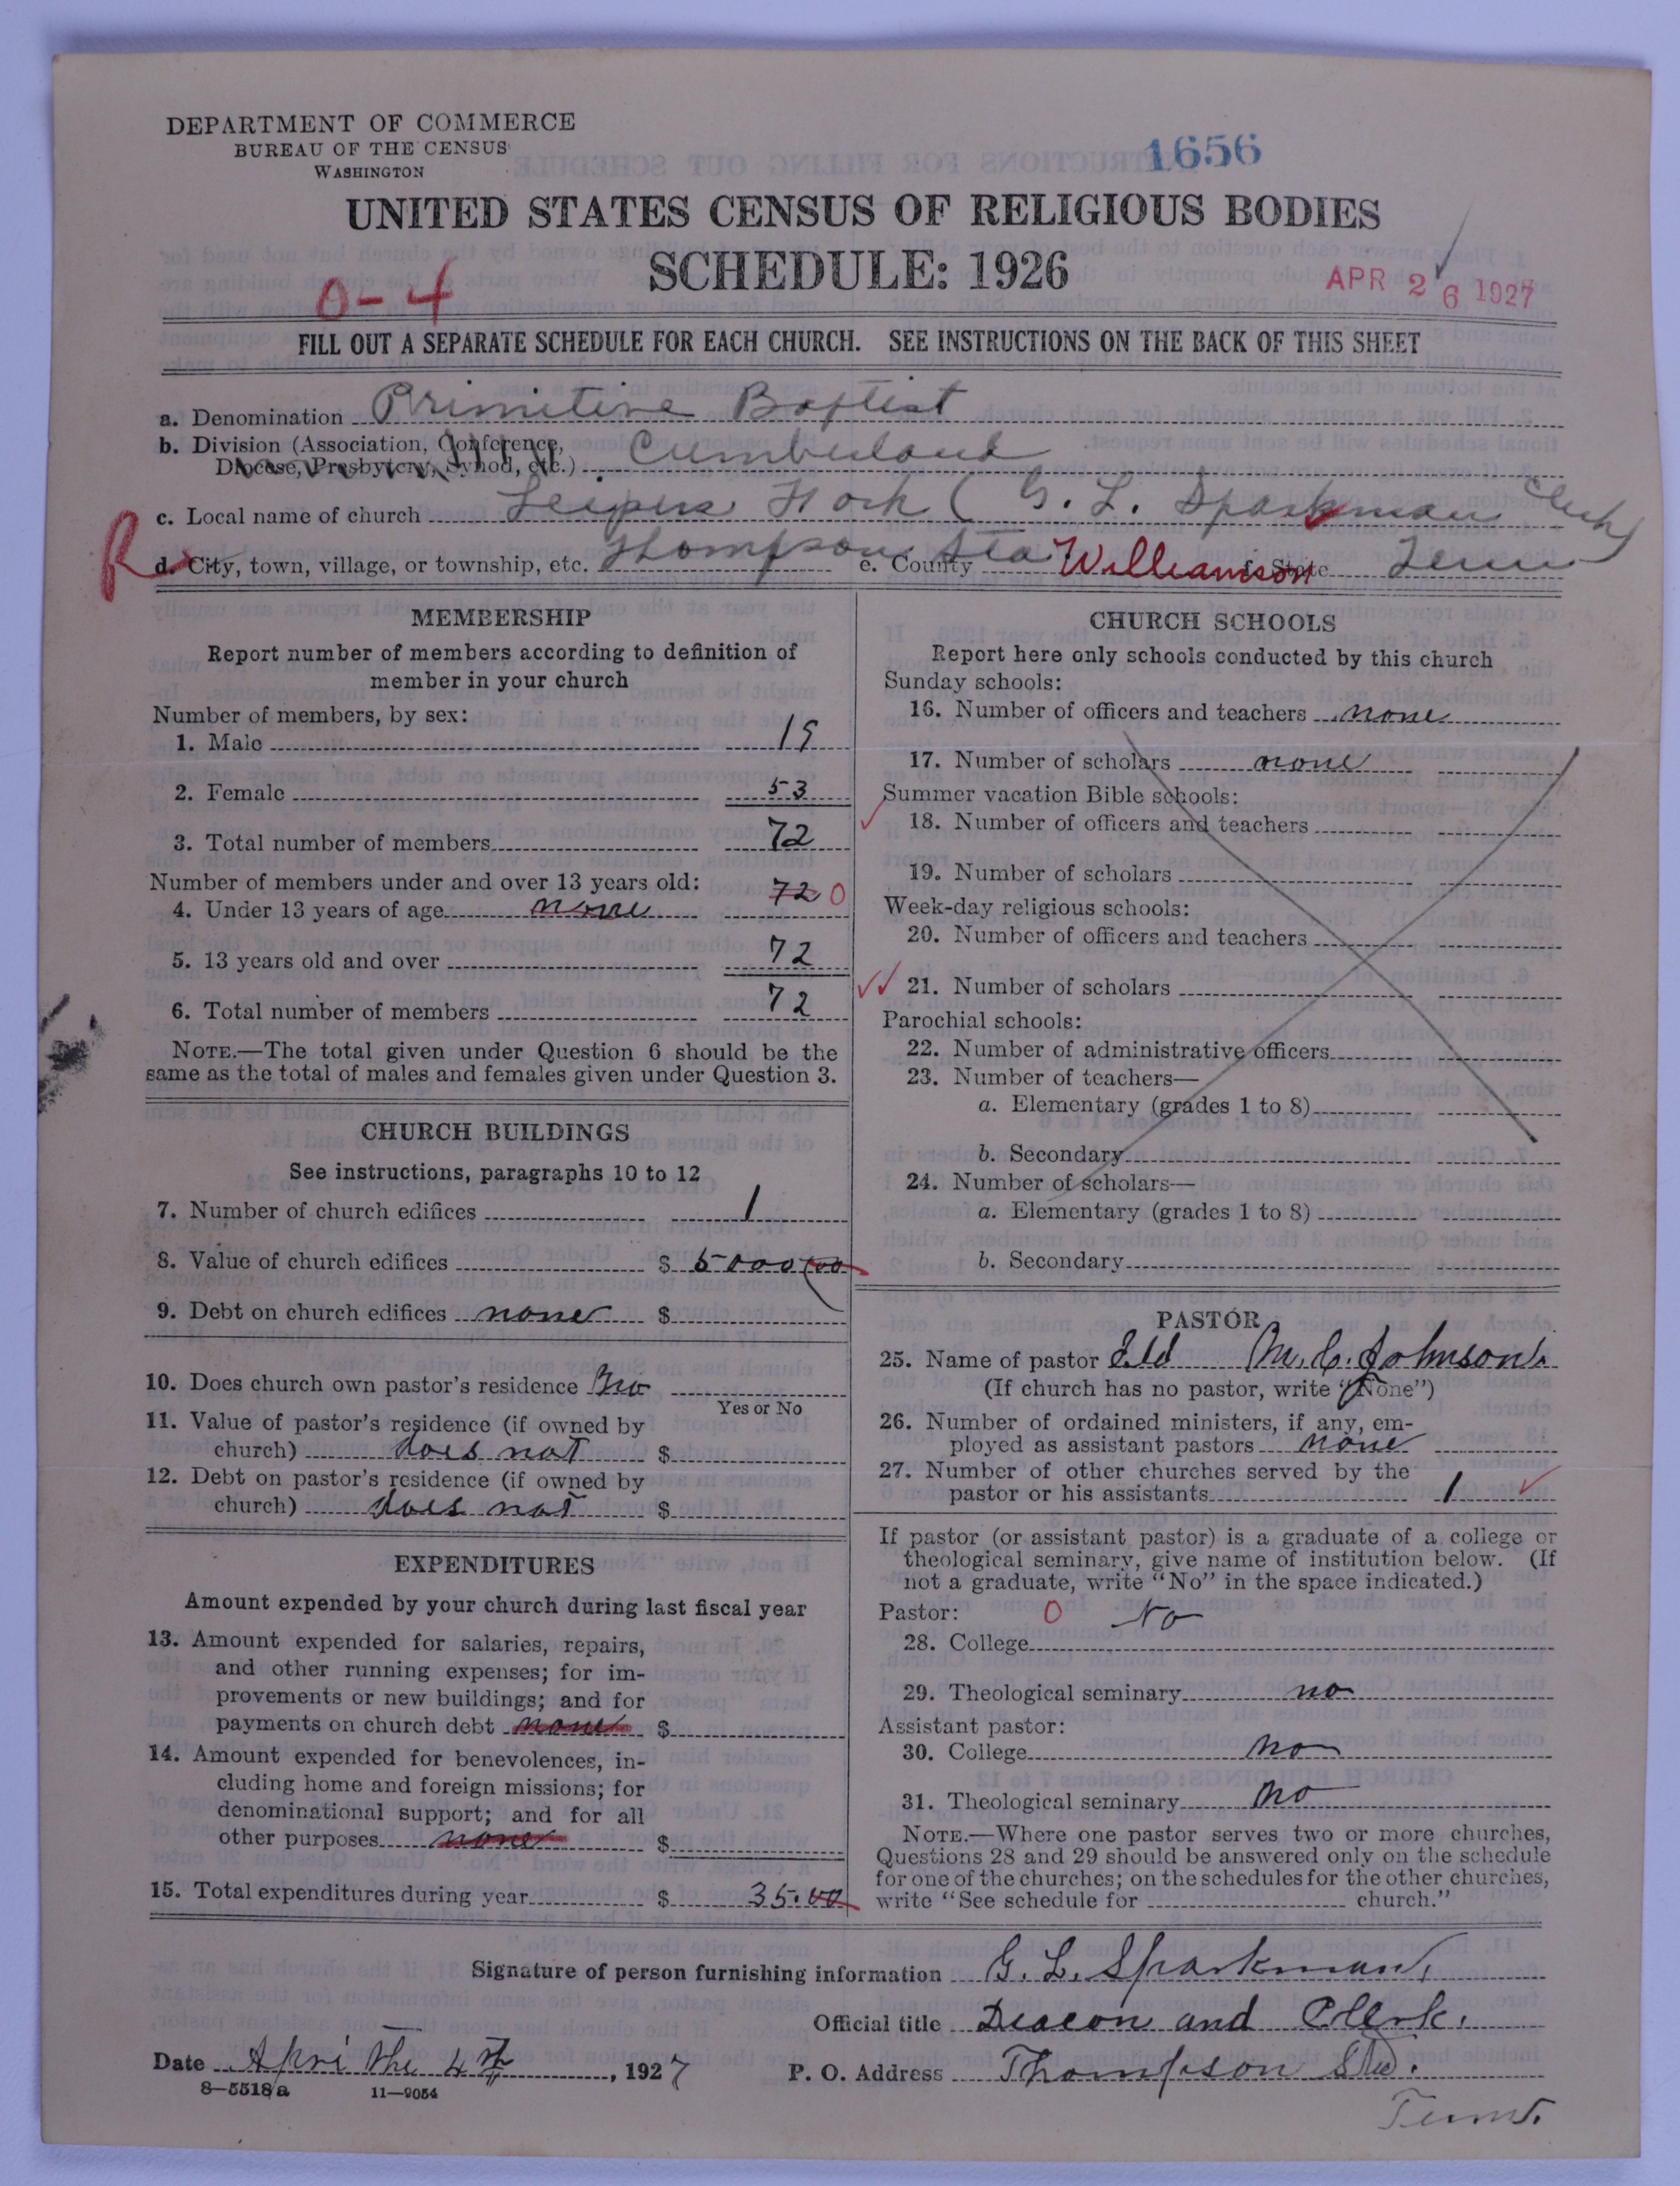 DEPARTMENT OF COMMERCE
BUREAU OF THE CENSUS
WASHINGTON
1656
UNITED STATES CENSUS OF RELIGIOUS BODIES
SCHEDULE: 1926
0-4
APR 26 1927
FILL OUT A SEPARATE SCHEDULE FOR EACH CHURCH. SEE INSTRUCTIONS ON THE BACK OF THIS SHEET
a. Denomination Primitive Baptist
b. Division (Association, Conference,
Diocese, Presbytery, Synod, etc.) Cumberland
c. Local name of church Leipers Fork ( G. L. Sparkman Clerk)
R
d. City, town, village, or township, etc. Thompson Sta e. County Williamson f. State Tenn
MEMBERSHIP
Report number of members according to definition of
member in your church
Number of members, by sex:
1. Male 19
2. Female 53
3. Total number of members 72
Number of members under and over 13 years old:
4. Under 13 years of age none 72 0
5. 13 years old and over 72
6. Total number of members 72
NOTE.—The total given under Question 6 should be the
same as the total of males and females given under Question 3.
CHURCH BUILDINGS
See instructions, paragraphs 10 to 12
7. Number of church edifices 1
8. Value of church edifices $ 5000 00
9. Debt on church edifices none $
10. Does church own pastor's residence No
Yes or No
11. Value of pastor's residence (if owned by
church) does not $
12. Debt on pastor's residence (if owned by
church) does not $
EXPENDITURES
Amount expended by your church during last fiscal year
13. Amount expended for salaries, repairs,
and other running expenses; for im-
provements or new buildings; and for
payments on church debt none $
14. Amount expended for benevolences, in-
cluding home and foreign missions; for
denominational support; and for all
other purposes none $
15. Total expenditures during year $ 35.00
CHURCH SCHOOLS
Report here only schools conducted by this church
Sunday schools:
16. Number of officers and teachers none
17. Number of scholars none
Summer vacation Bible schools:
18. Number of officers and teachers
19. Number of scholars
Week-day religious schools:
20. Number of officers and teachers
21. Number of scholars
Parochial schools:
22. Number of administrative officers
23. Number of teachers—
a. Elementary (grades 1 to 8)
b. Secondary
24. Number of scholars—
a. Elementary (grades 1 to 8)
b. Secondary
PASTOR
25. Name of pastor Eld M. C. Johnson.
(If church has no pastor, write "None")
26. Number of ordained ministers, if any, em-
ployed as assistant pastors none
27. Number of other churches served by the
pastor or his assistants 1
If pastor (or assistant pastor) is a graduate of a college or
theological seminary, give name of institution below. (If
not a graduate, write "No" in the space indicated.)
Pastor: 0 No
28. College
29. Theological seminary no
Assistant pastor:
30. College no
31. Theological seminary no
NOTE.—Where one pastor serves two or more churches,
Questions 28 and 29 should be answered only on the schedule
for one of the churches; on the schedules for the other churches,
write "See schedule for church."
Signature of person furnishing information G. L. Sparkman.
Official title Deacon and Clerk.
Date Apri the 4th, 1927 P. O. Address Thompson Sta.
8-5518a 11-9054
Tenn.